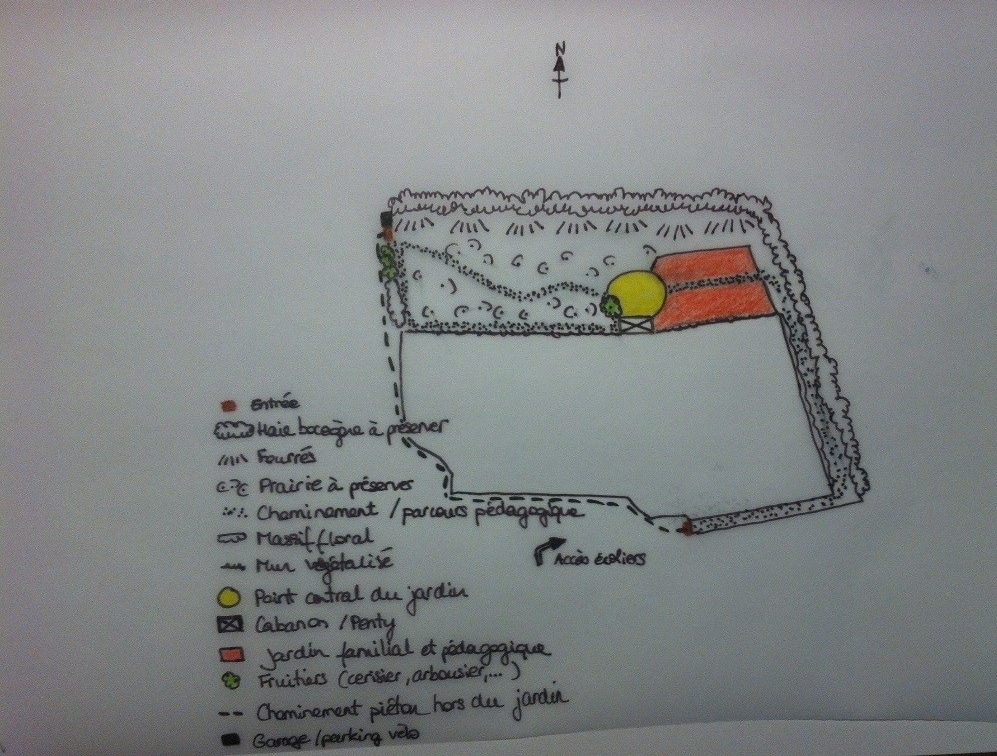 N
Entrée
Haie bocagère à préserver
Fourrés
Prairie à préserver
Cheminement / parcours pédagogique
Massif floral
Mur végétalisé
Accès écoliers
Point central du jardin
Cabanon / Penty
Jardin familial et pédagogique
Fruitiers (cerisier, arbousier, ...)
Cheminement piéton hors du jardin
Garage / parking vélo